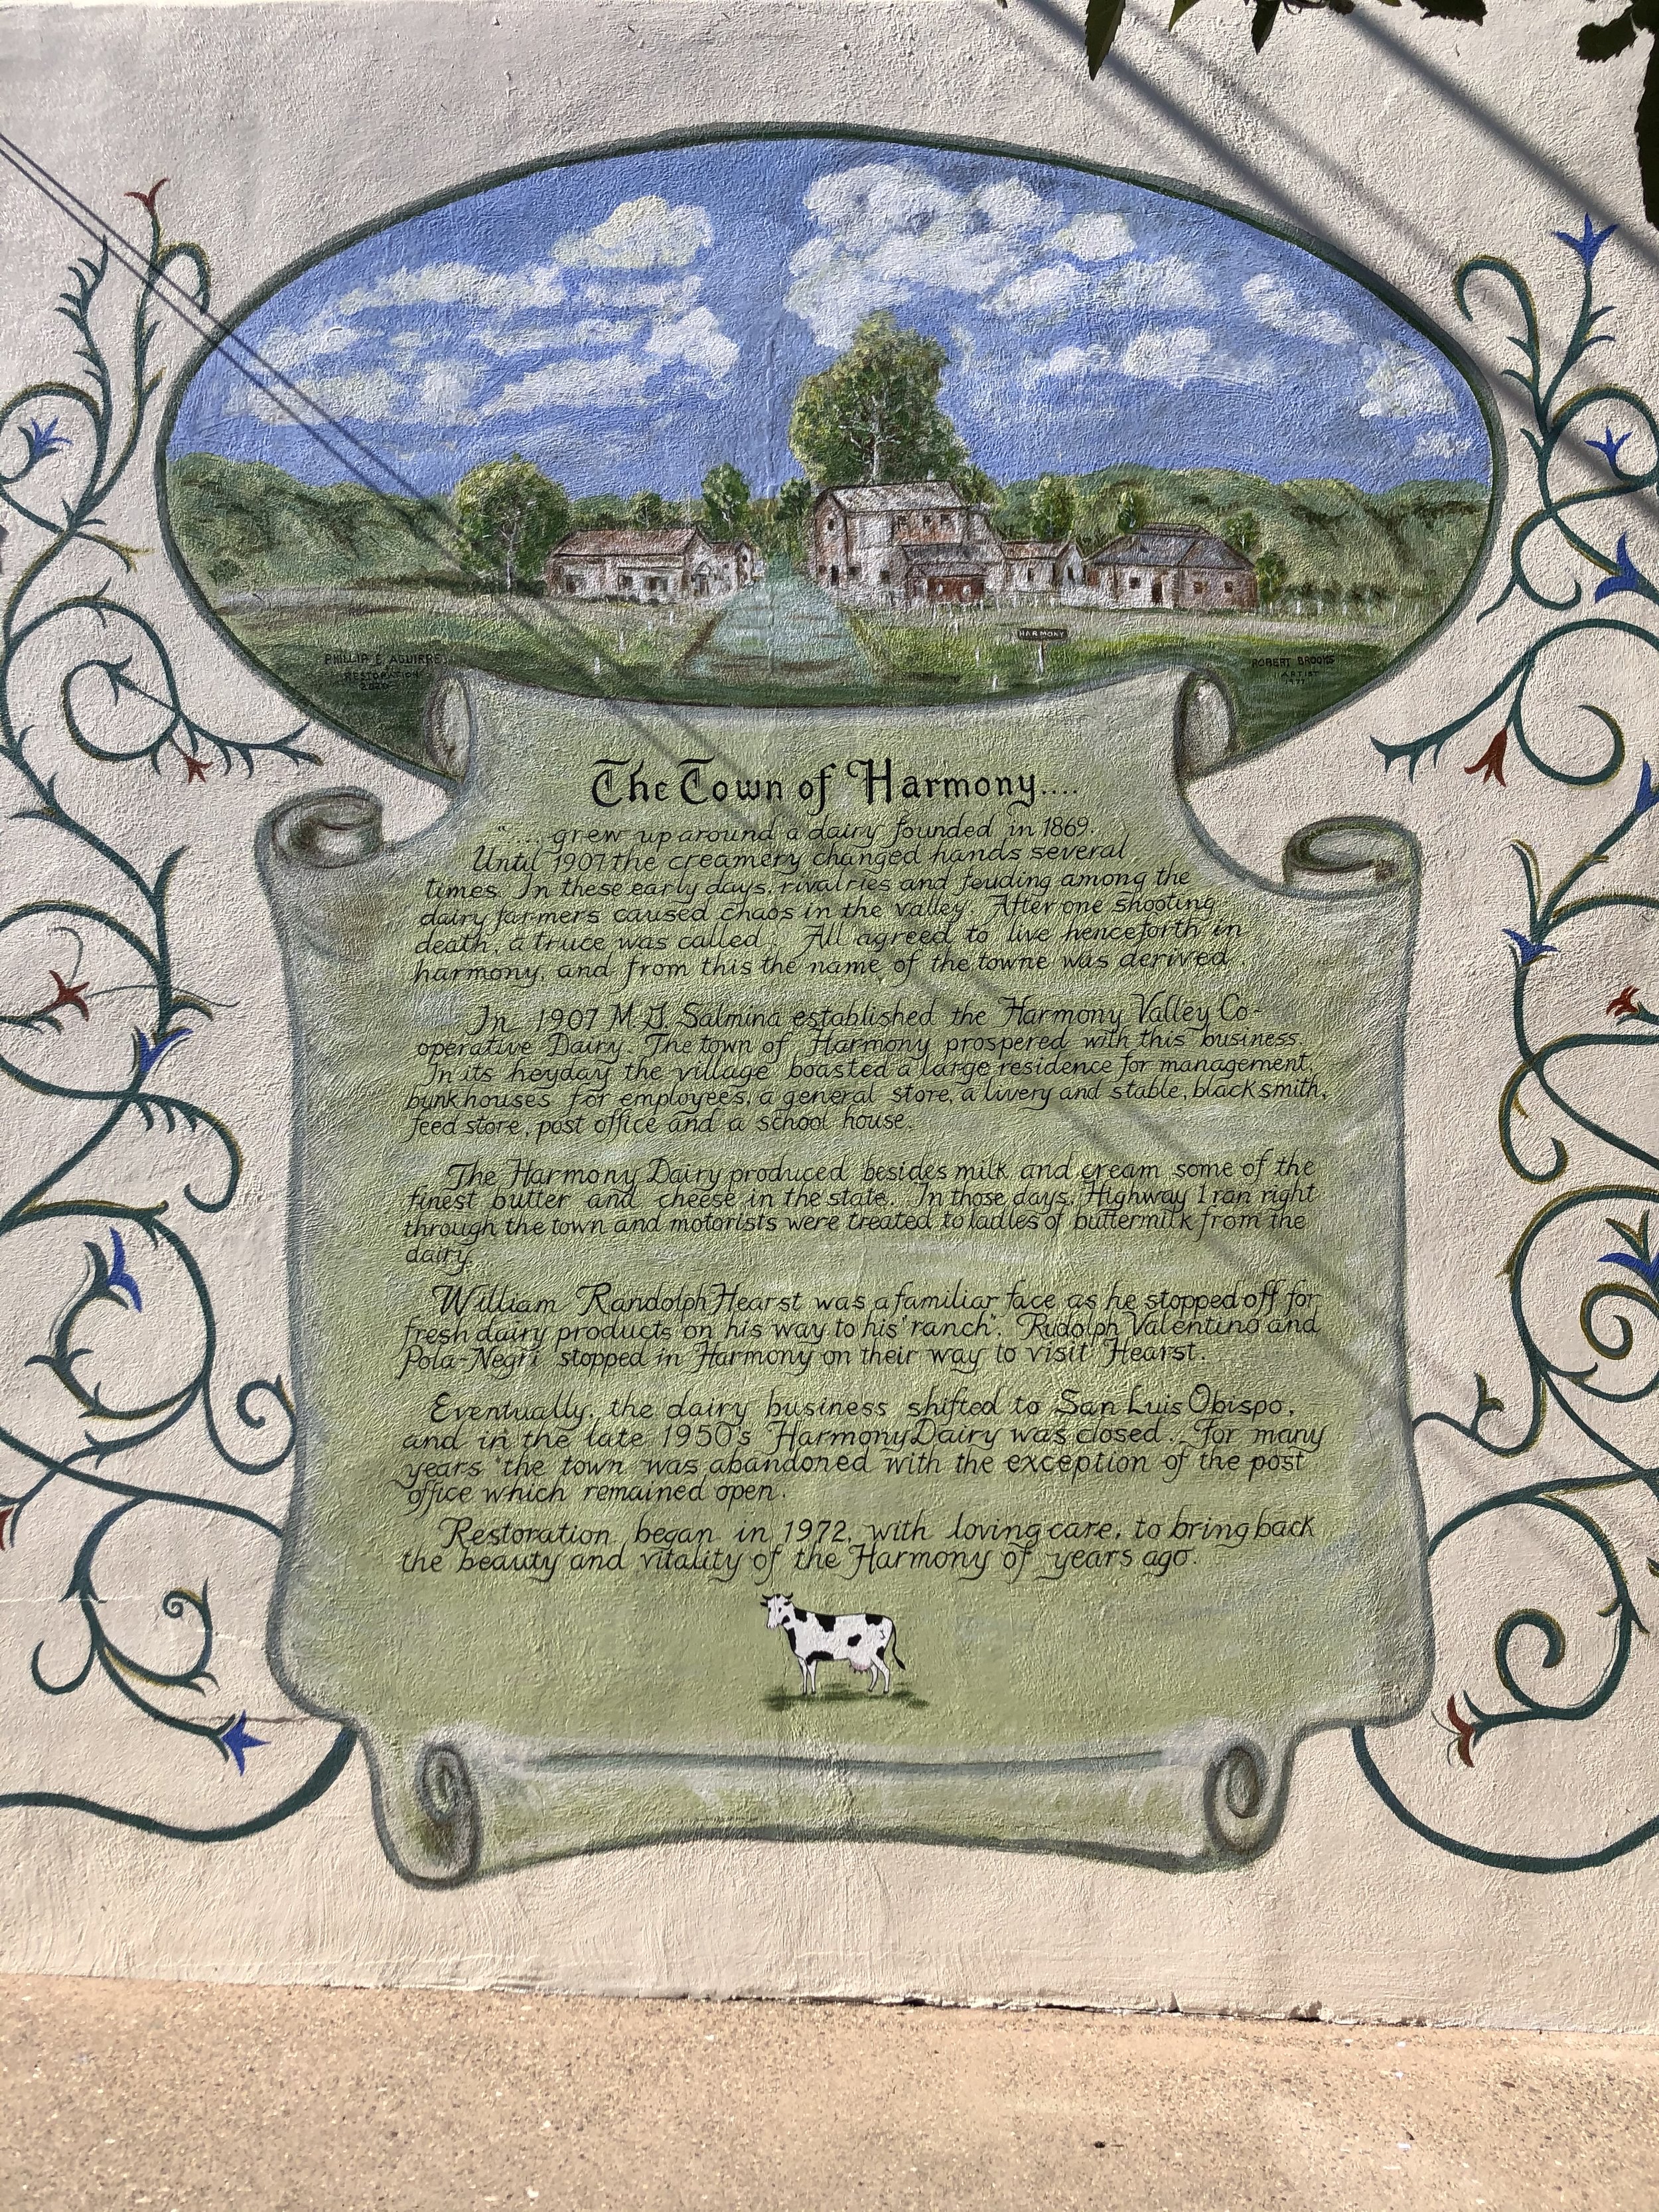 HARMONY
PHILLIP E. AGUIRRE
RESTORATION
2020
ROBERT BROOKS
ARTIST
The Town of Harmony....
"..... grew up around a dairy founded in 1869.
Until 1907 the creamery changed hands several
times. In these early days, rivalries and feuding among the
dairy farmers caused chaos in the valley. After one shooting
death, a truce was called. All agreed to live henceforth in
harmony, and from this the name of the towne was derived.
In 1907 M.G. Salmina established the Harmony Valley Co-
operative Dairy. The town of Harmony prospered with this business.
In its heyday the village boasted a large residence for management,
bunkhouses for employees, a general store, a livery and stable, blacksmith,
feed store, post office and a school house.
The Harmony Dairy produced besides milk and cream some of the
finest butter and cheese in the state. In those days, Highway 1 ran right
through the town and motorists were treated to ladles of buttermilk from the
dairy.
William Randolph Hearst was a familiar face as he stopped off for
fresh dairy products on his way to his "ranch". Rudolph Valentino and
Pola-Negri stopped in Harmony on their way to visit Hearst.
Eventually, the dairy business shifted to San Luis Obispo,
and in the late 1950's Harmony Dairy was closed. For many
years the town was abandoned with the exception of the post
office which remained open.
Restoration began in 1972, with loving care, to bring back
the beauty and vitality of the Harmony of years ago.